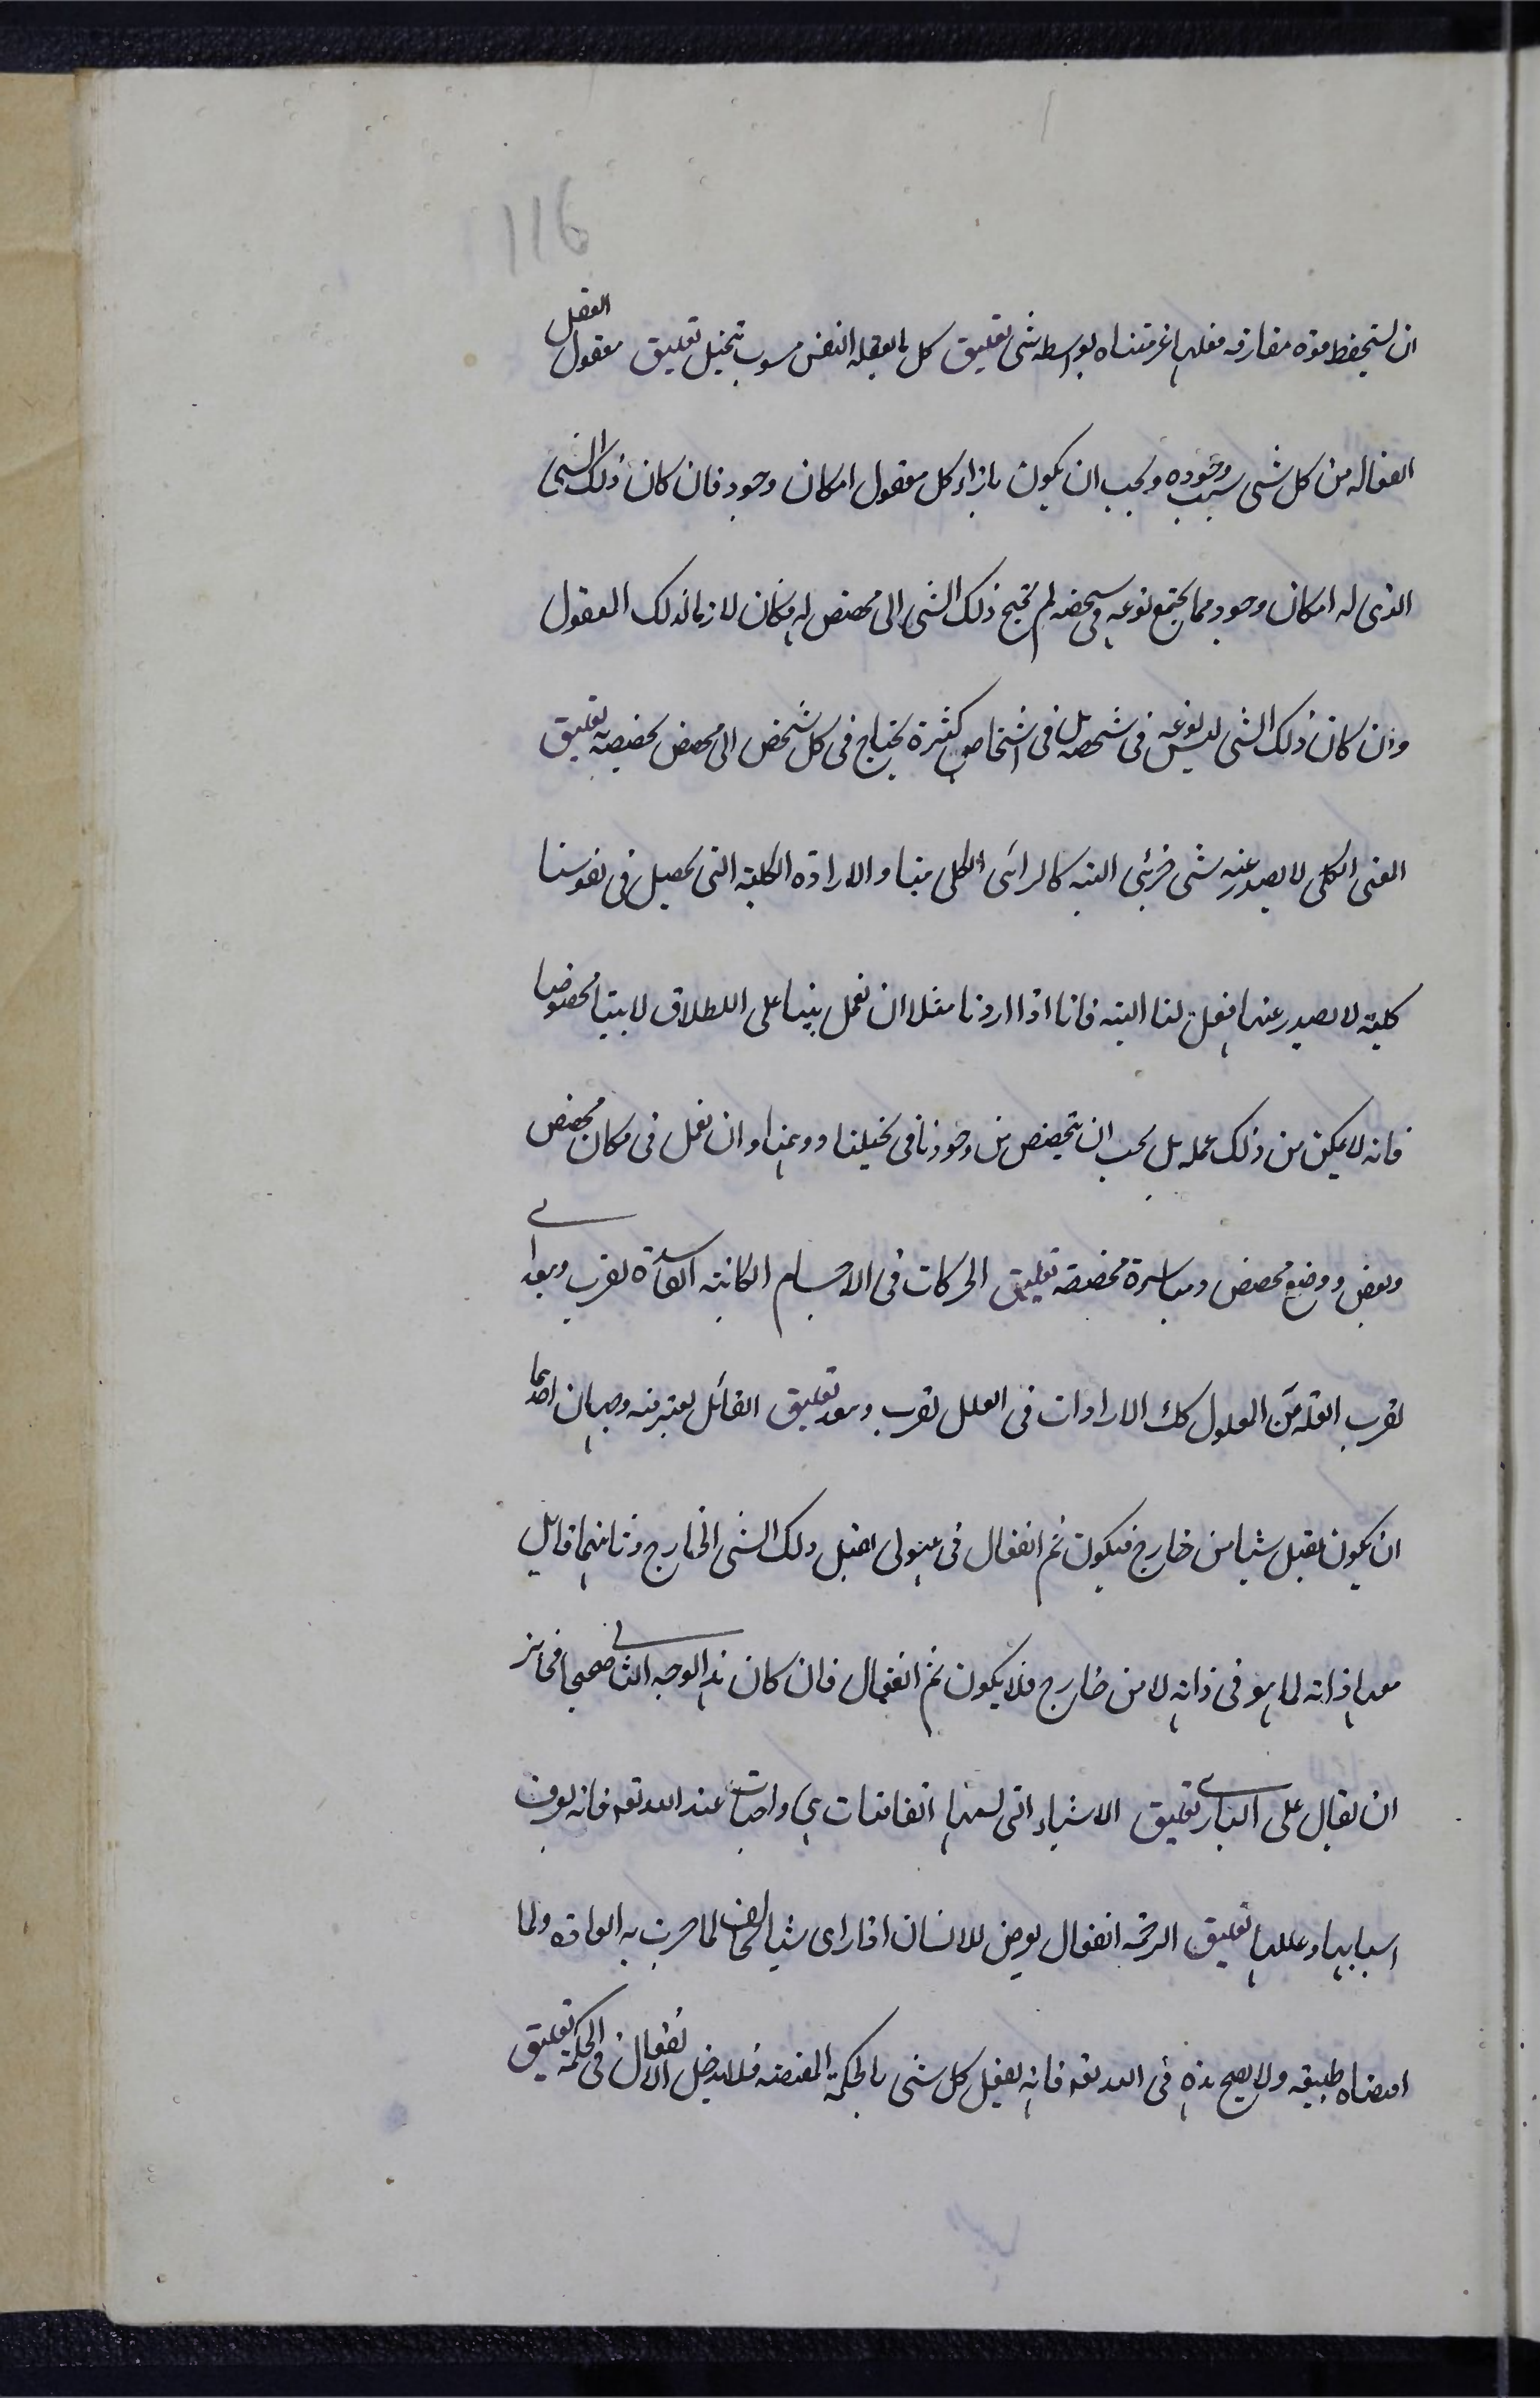 116
ان يستحفظ قوة مفارقه فعلها غير متناه بواسطه شى تعليق كل ما يعقله النفس مشوب بتخيل تعليق معقول العقل
الفعال من كل شى سبب وجوده ويجب ان يكون بازاء كل معقول امكان وجود فان كان ذلك الشى
الذى له امكان وجود مما يجتمع نوعه فى شخصه لم يحتج ذلك الشى الى مخصص له فكان لازما لذلك المعقول
وان كان ذلك الشى ليس نوعه فى شخصه بل فى اشخاص كثيرة يحتاج فى كل شخص الى مخصص يخصصه تعليق
المعنى الكلى لا يصدر عنه شى جزئى البته كالرأى الكلى منا والارادة الكلية التى يحصل فى نفوسنا
كلية لا يصدر عنها فعل لنا البته فانا اذا اردنا مثلا ان نعمل بيتا على الاطلاق لا بيتا مخصوصا
فانه لا يمكن من ذلك عمله بل يجب ان يتخصص من وجودنا فى تخيلنا ووهمنا وان نعمل فى مكان مخصص
وبعض ووضع مخصص ومباشرة مخصصة تعليق الحركات فى الاجسام الكائنه الفاسدة تقرب وتبعد اى
تقرب العلة من المعلول كك الارادات فى العلل تقرب وتبعد تعليق القائل يعتبر فيه وجهان احدهما
ان يكون يقبل شيئا من خارج فيكون ثم انفعال فى هيولى تقبل ذلك الشى الخارج وثانيهما قابل
من ذاته لما هو فى ذاته لا من خارج فلا يكون ثم انفعال فان كان هذا الوجه الثانى صحيحا فجائز
ان يقال على البارى تعليق الاشياء التى نسميها اتفاقيات هى واجبات عند الله تعه فانه يعرف
اسبابها وعللها تعليق الرحمة انفعال يعرض للانسان اذا راى شيئا مخالفا لما جرت به العادة ولما
اقتضاه طبيعه ولا يصح هذه فى الله تعه فانه يفعل كل شى بالحكمة المقتضه فلا يدخل الانفعال فى الحكمة تعليق